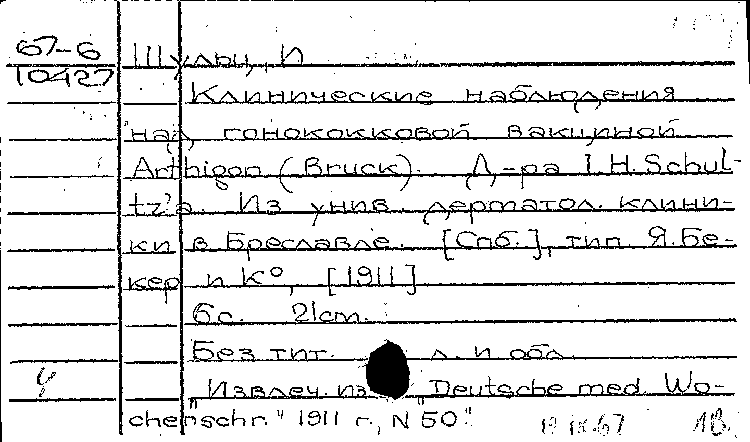 67-6
10427
Шульц, И
Клинические наблюдения
над гонококковой вакциной
Arthigon (Bruck). Д-ра I.H.Schul-
tz'a. Из унив. дерматол. клини-
ки в Бреславле. [Спб.], тип. Я.Бе-
кер и К°, [1911]
6с. 21cm.
Без тит. л. и обл.
"Извлеч. из "Deutsche med. Wo-
chenschr." 1911 г., N 50".